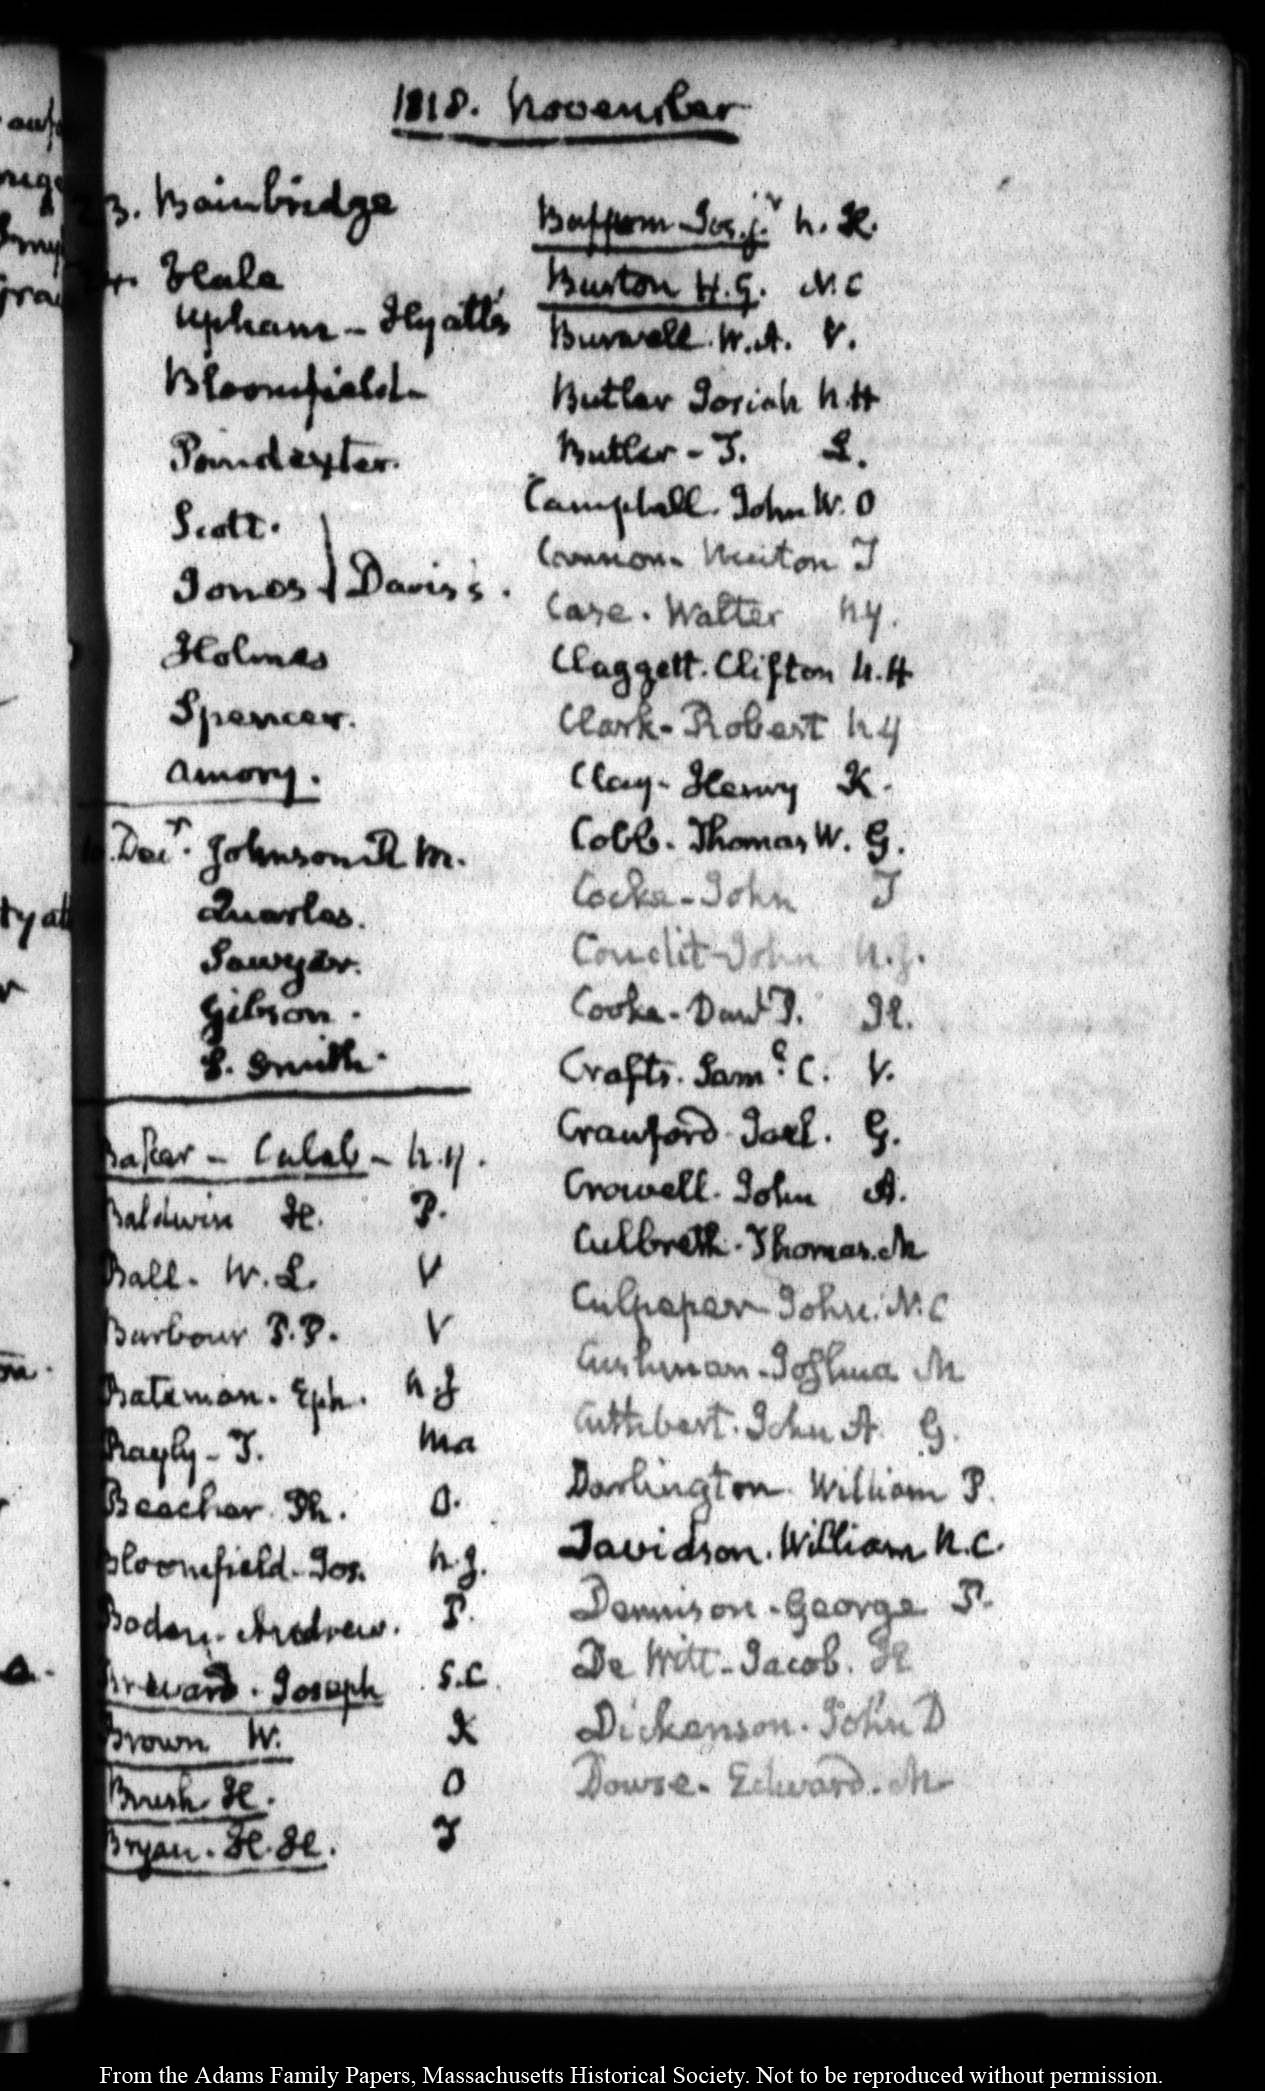 1818. November
23. Bainbridge
24. Hale
Upham - Hyatt's
Bloomfield
Poindexter.
Scott.
Jones } Davis's.
Holmes
Spencer.
Amory.
Decr. Johnson R M.
Quarles.
Sawyer.
Gibson.
S. Smith.
Baker - Caleb - N.Y.
Baldwin H. P.
Ball. W. L. V
Barbour P. P. V
Bateman. Eph. N.J
Bayly - T. Ma
Beecher. Ph. O.
Bloomfield. Jos. N.J.
Boden. Andrew. P.
Brevard. Joseph S.C
Brown W. K
Brush H. O
Bryan. H. H. T
Buffum Jos. jr. N. H.
Burton H. G. N. C
Burwell. W. A. V.
Butler Josiah N. H
Butler - T. L.
Campbell. John W. O
Cannon. Newton T
Case. Walter N.Y.
Claggett. Clifton N. H
Clark - Robert N Y
Clay - Henry K.
Cobb. Thomas W. G.
Cocke - John T
Condit - John N. J.
Cooke - Danl P. Il.
Crafts. Saml. C. V.
Crawford Joel. G.
Crowell. John A.
Culbreth. Thomas. M
Culpeper John. N. C
Cushman - Joshua M
Cuthbert. John A G.
Darlington William P.
Davidson. William N. C.
Dennison - George P.
De Witt - Jacob.
Dickenson. John D
Dowse - Edward. M
From the Adams Family Papers, Massachusetts Historical Society. Not to be reproduced without permission.